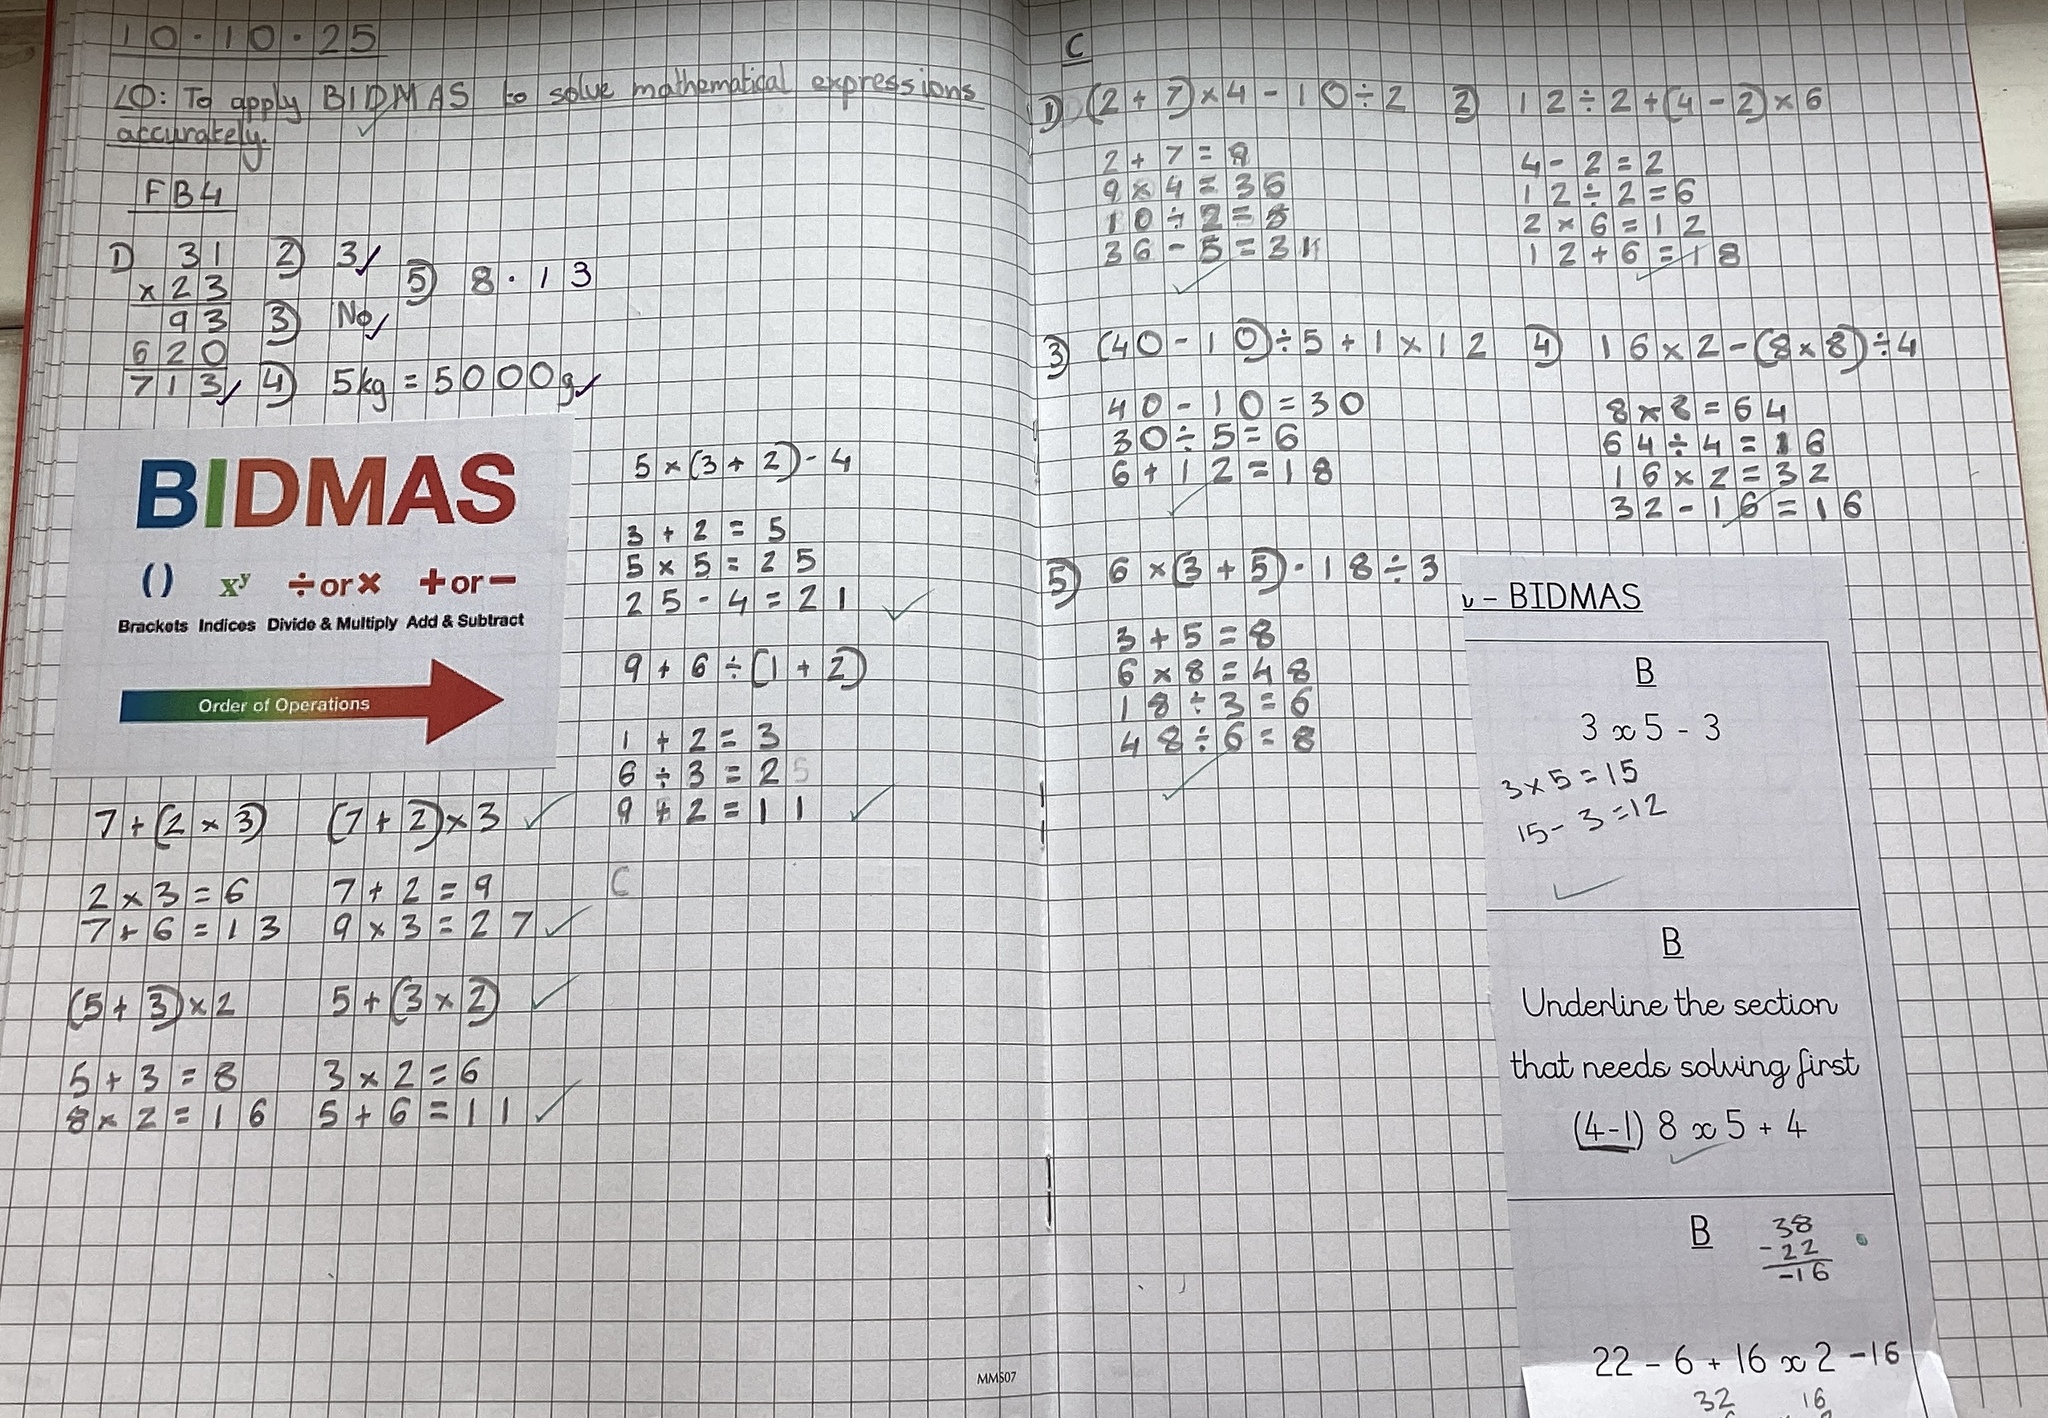 10.10.25
LO: To apply BIDMAS to solve mathematical expressions
accurately.
FB4
1) 31
×23
93
620
713
2) 3
3) No
4) 5kg = 5000g
5) 8.13
BIDMAS
() xʸ ÷ or × + or −
Brackets Indices Divide & Multiply Add & Subtract
Order of Operations
7+(2×3)
2×3=6
7+6=13
(7+2)×3
7+2=9
9×3=27
(5+3)×2
5+3=8
8×2=16
5+(3×2)
3×2=6
5+6=11
5×(3+2)-4
3+2=5
5×5=25
25-4=21
9+6÷(1+2)
1+2=3
6÷3=2
9+2=11
C
MMS07
C
1) (2+7)×4-10÷2
2+7=9
9×4=36
10÷2=5
36-5=31
2) 12÷2+(4-2)×6
4-2=2
12÷2=6
2×6=12
12+6=18
3) (40-10)÷5+1×12
40-10=30
30÷5=6
6+12=18
4) 16×2-(8×8)÷4
8×8=64
64÷4=16
16×2=32
32-16=16
5) 6×(3+5)·18÷3
3+5=8
6×8=48
18÷3=6
48÷6=8
- BIDMAS
B
3 x 5 - 3
3×5=15
15-3=12
B
Underline the section
that needs solving first
(4-1) 8 x 5 + 4
B
38
-22
-16
22 - 6 + 16 x 2 -16
32 16